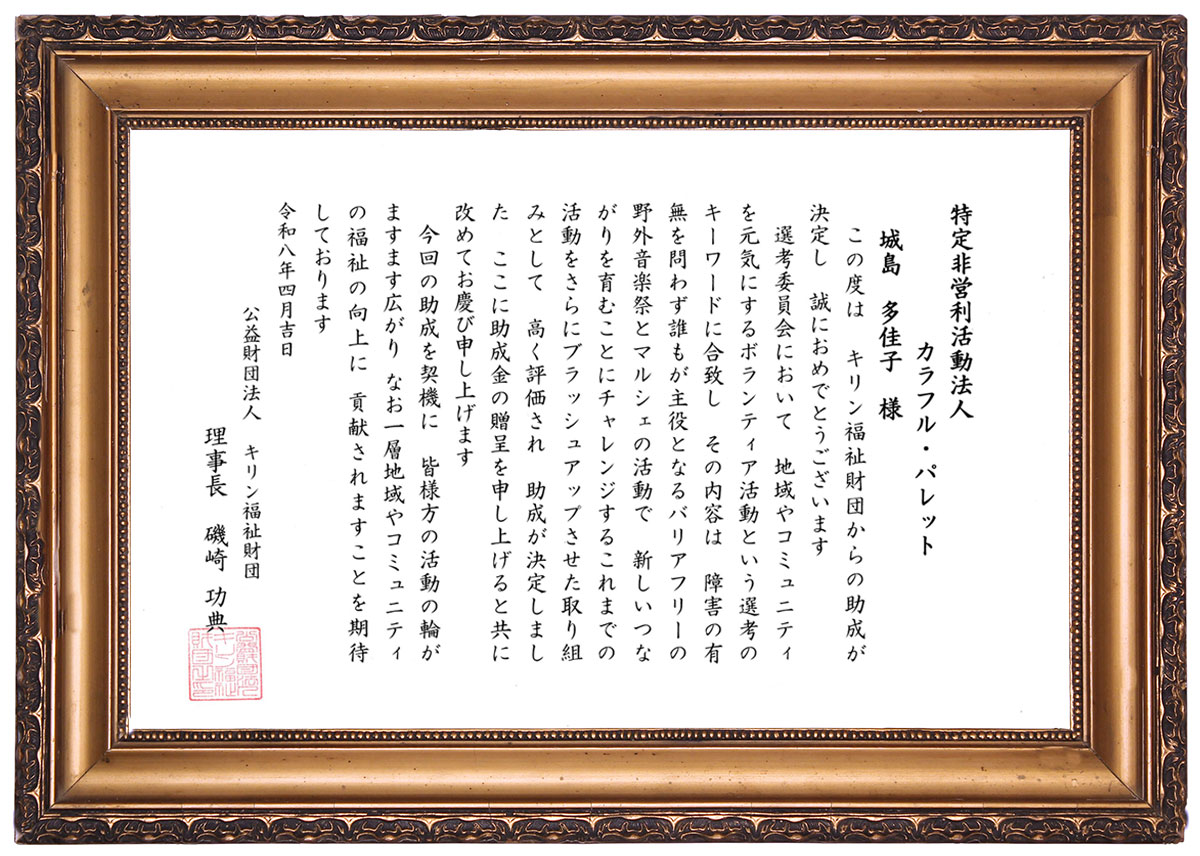 特定非営利活動法人
カラフル・パレット
城島　多佳子　様
この度は　キリン福祉財団からの助成が
決定し　誠におめでとうございます
選考委員会において　地域やコミュニティ
を元気にするボランティア活動という選考の
キーワードに合致し　その内容は　障害の有
無を問わず誰もが主役となるバリアフリーの
野外音楽祭とマルシェの活動で　新しいつな
がりを育むことにチャレンジするこれまでの
活動をさらにブラッシュアップさせた取り組
みとして　高く評価され　助成が決定しまし
た　ここに助成金の贈呈を申し上げると共に
改めてお慶び申し上げます
今回の助成を契機に　皆様方の活動の輪が
ますます広がり　なお一層地域やコミュニティ
の福祉の向上に　貢献されますことを期待
しております
令和八年四月吉日
公益財団法人　キリン福祉財団
理事長　磯崎　功典